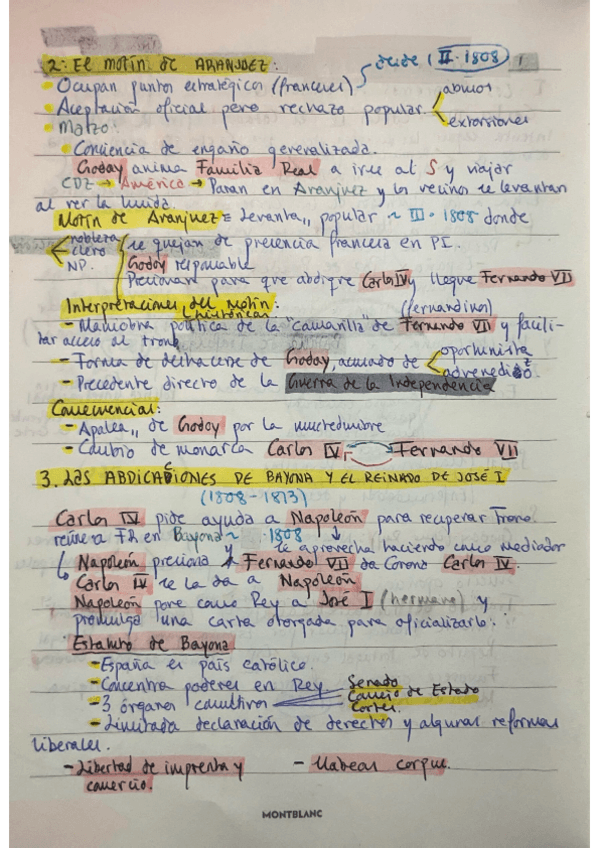 2: El motín de ARANJUEZ:
desde (II·1808)
• Ocupan puntos estratégicos (franceses)
• Aceptación oficial pero rechazo popular
abusos
extorsiones
• Marzo:
• Conciencia de engaño generalizada.
Godoy anima Familia Real a irse al S y viajar
CDZ → América → Paran en Aranjuez y los vecinos se levantan
al ver la huida.
Motín de Aranjuez = Levanta,, popular ~ III·1808 donde
nobleza
clero
NP.
se quejan de presencia francesa en PI.
Godoy responsable
Presionan para que abdique Carlos IV y llegue Fernando VII
Interpretaciones del motín:
históricas
(fernandinos)
- Maniobra política de la "camarilla" de Fernando VII y facili-
tar acceso al trono
- Forma de deshacerse de Godoy, acusado de
oportunista
advenedizo
- Precedente directo de la Guerra de la Independencia
Consecuencias:
- Apalea,, de Godoy por la muchedumbre
- Cambio de monarca Carlos IV Fernando VII
3. LAS ABDICACIONES DE BAYONA Y EL REINADO DE JOSÉ I
(1808-1813)
Carlos IV pide ayuda a Napoleón para recuperar Trono
reúne a FR en Bayona ~ ·1808 y se aprovecha haciendo único mediador
Napoleón presiona Fernando VII da Corona Carlos IV.
Carlos IV se la da a Napoleón
Napoleón pone como Rey a José I (hermano) y
promulga una carta otorgada para oficializarlo:
Estatuto de Bayona
- España es país católico.
- Concentra poderes en Rey
- 3 órganos consultivos
Senado
Consejo de Estado
Cortes.
- Limitada declaración de derechos y algunas reformas
liberales.
- Libertad de imprenta y
comercio.
- Habeas corpus.
MONTBLANC